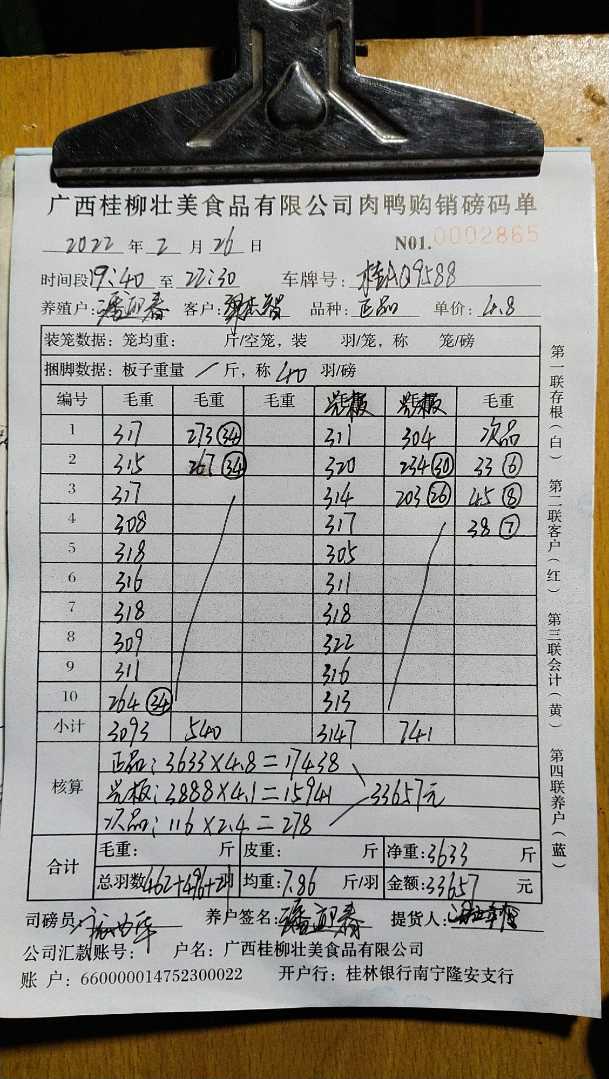 广西桂柳壮美食品有限公司肉鸭购销磅码单
2022 年 2 月 26 日 N01. 0002865
时间段 19:40 至 22:30 车牌号: 桂AQ9588
养殖户: 潘迎春 客户: 品种: 正品 单价: 4.8
装笼数据: 笼均重: 斤/空笼, 装 羽/笼, 称 笼/磅
捆脚数据: 板子重量 / 斤, 称 40 羽/磅
编号 毛重 毛重 毛重 光板 光板 毛重
1 317 273 (34) 311 304 次品
2 315 267 (34) 320 234 (30) 33 (6)
3 317 314 203 (26) 45 (8)
4 308 317 38 (7)
5 318 305
6 316 311
7 318 318
8 309 322
9 311 316
10 264 (34) 313
小计 3093 540 3147 741
核算 正品: 3633×4.8=17438
光板: 3888×4.1=15941 33657元
次品: 116×2.4=278
合计 毛重: 斤 皮重: 斤 净重: 3633 斤
总羽数 462+496+21 均重: 7.86 斤/羽 金额: 33657 元
司磅员: 养户签名: 潘迎春 提货人:
公司汇款账号: 户名: 广西桂柳壮美食品有限公司
账 户: 660000014752300022 开户行: 桂林银行南宁隆安支行
第一联存根(白) 第二联客户(红) 第三联会计(黄) 第四联养户(蓝)